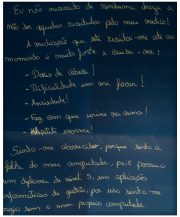 Eu não necessito de nenhuma droga a
não ser aquelas receitadas pelo meu médico!
A medicação que até receitou-me até ao
momento é muito forte e causa-me:
- Dores de Cabeça!
- Dificuldade em me focar!
- Ansiedade!
- Faz com que urine na cama!
- Apetite enorme!
Sinto-me obsoreciso, porque sinto a
falta do meu computador, pois possuo
um diploma de nível 5, em aplicações
informáticas de gestão, por isso sinto-me
sem o meu próprio computador